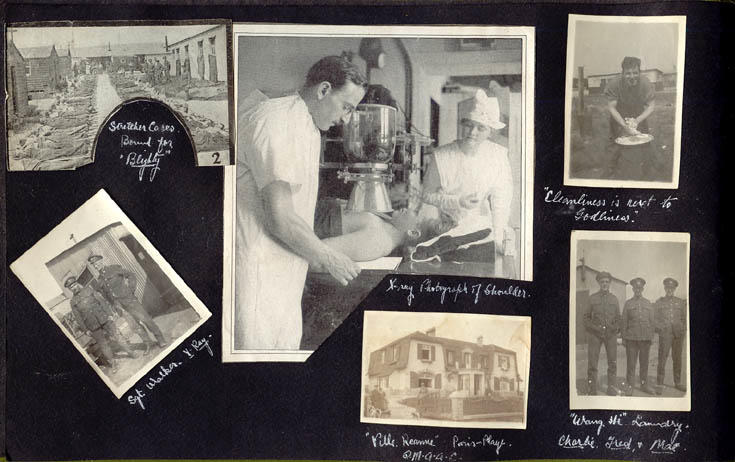 Stretcher Cases
Bound for
"Blighty"
2
X-ray Photograph of Shoulder.
"Cleanliness is next to
Godliness".
Sgt Walker. X-Ray.
"Ville Reanne" Paris-Plage.
Q.M.A.A.C.
"Wang Hi" Laundry.
Charlie, Fred, & Mac